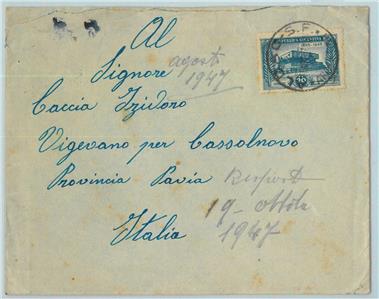 Al
Signore
agosto
1947
Caccia Izidoro
Vigevano per Cassolnovo
Provincia Pavia
19 - 
1947
Italia